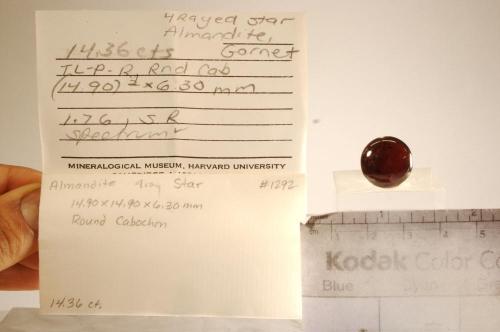 4 Rayed Star
Almandite,
14.36 cts Garnet
TL-P-R, Rnd Cab
(14.90)² x 6.30 mm
1.76, S.R
Spectrum
MINERALOGICAL MUSEUM, HARVARD UNIVERSITY
Almandite 4ray Star #1292
14.90 x 14.90 x 6.30 mm
Round Cabochon
14.36 ct.
cm 1 2 3 4
Kodak Color Co
Blue